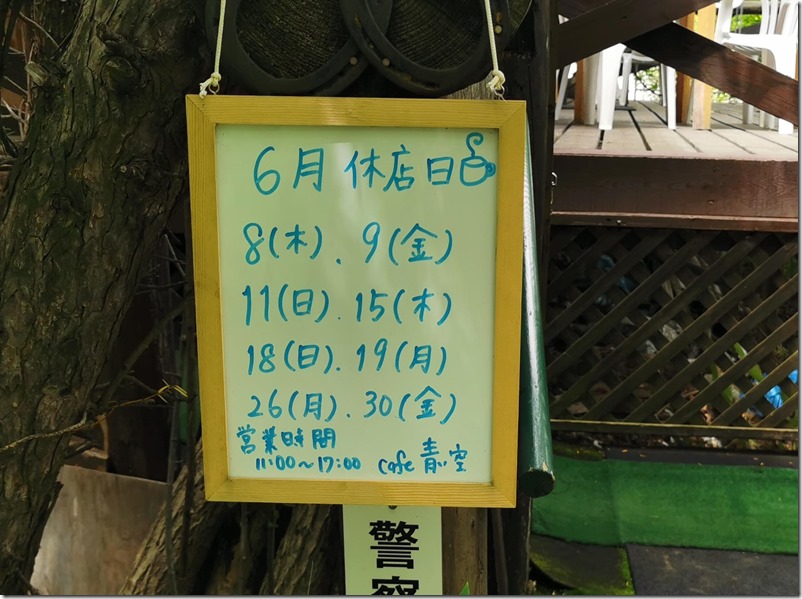 6月 休店日
8(木). 9(金)
11(日). 15(木)
18(日). 19(月)
26(月). 30(金)
営業時間
11:00～17:00 cafe 青い空
警察